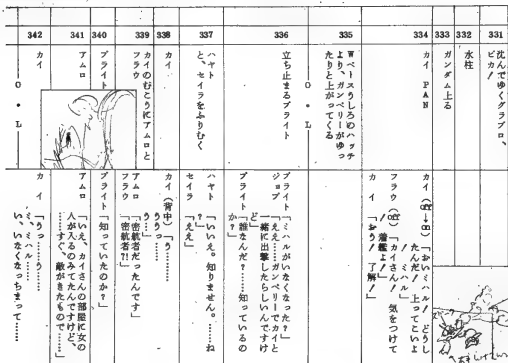 331
沈んでゆくグラブロ、
ピカ!
332
水柱
333
ガンダム上る
334
カイ PAN
カイ
「おいミハル! どうし
たんだ! 上ってこいよ
! ミハル」
フラウ
「カイさん! 気をつけて
着艦よ!」
カイ 「おう! 了解!」
335
Wベースうしろのハッチ
より、ガンペリーがゆっ
たりと上がってくる
O・L
336
立ち止まるブライト
ブライト「ミハルがいなくなった?」
ジョブ 「ええ……ガンペリーでカイと
一緒に出撃したらしいんですけ
ど」
ブライト「誰なんだ?……知っているの
か?」
337
ハヤト
と、セイラをふりむく
ハヤト 「いいえ。知りません。……ね
?」
セイラ 「ええ」
338
カイ
カイ(背中)「う……
ううっ……
う…」
339
カイのむこうにアムロと
フラウ
アムロ 「密航者だったんです」
フラウ 「密航者?!」
340
ブライト
ブライト「知っていたのか?」
341
アムロ
アムロ 「いえ、カイさんの部屋に女の
人が入るのみてたんですけど、
……すぐ、敵がきたもので……」
O・L
342
カイ
カイ 「うっ……う……
ミ、ミハル……
い、いなくなっちまって……